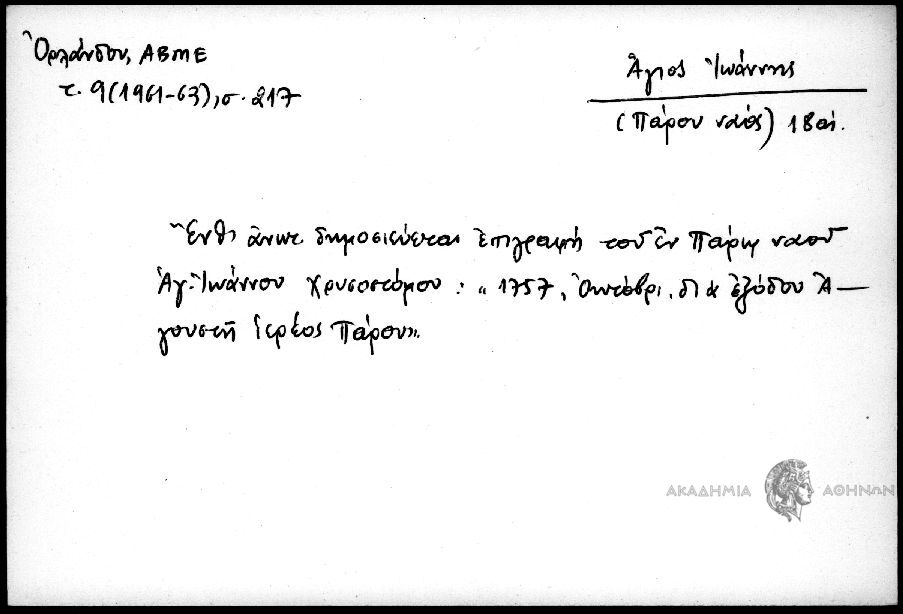 Ὀρλάνδου, ΑΒΜΕ
τ. 9 (1961-63), σ. 217
Ἅγιος Ἰωάννης
(Πάρου ναός) 18 αἰ.
Ἔνθ' ἄνωτ. δημοσιεύεται ἐπιγραφή τοῦ ἐν Πάρῳ ναοῦ
Ἁγ. Ἰωάννου Χρυσοστόμου : « 1757, Ὀκτόβρι. διά ἐξόδου Ἀ—
γουστῆ ἱερέος Πάρου».
ΑΚΑΔΗΜΙΑ ΑΘΗΝΩΝ